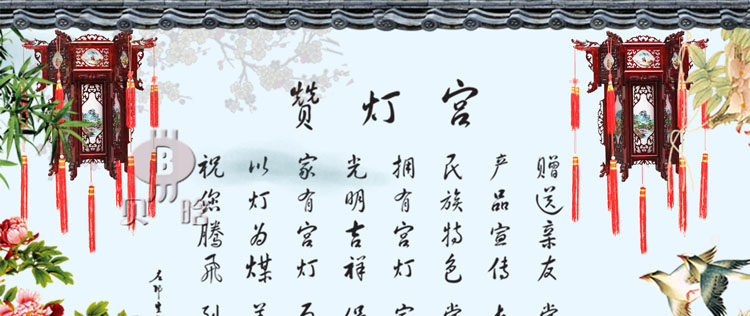 宫灯赞
赠送亲友
产品宣传
民族特色
拥有宫灯
光明吉祥
家有宫灯
以灯为煤
祝您腾飞
贝晗
B